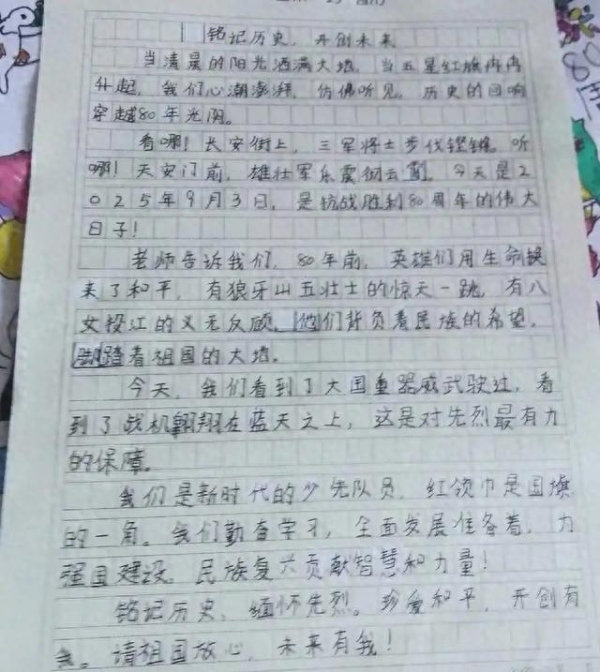 铭记历史，开创未来
当清晨的阳光洒满大地，当五星红旗冉冉
升起，我们心潮澎湃，仿佛听见，历史的回响
穿越80年光阴。
看哪！长安街上，三军将士步伐铿锵。听
哪！天安门前，雄壮军乐震彻云霄。今天是2
025年9月3日，是抗战胜利80周年的伟大
日子！
老师告诉我们，80年前，英雄们用生命换
来了和平，有狼牙山五壮士的惊天一跳，有八
女投江的义无反顾，他们背负着民族的希望，
脚踏着祖国的大地。
今天，我们看到了大国重器威武驶过，看
到了战机翱翔在蓝天之上，这是对先烈最有力
的保障。
我们是新时代的少先队员，红领巾是国旗
的一角。我们勤奋学习，全面发展准备着，为
强国建设，民族复兴贡献智慧和力量！
铭记历史，缅怀先烈。珍爱和平，开创有
我。请祖国放心，未来有我！